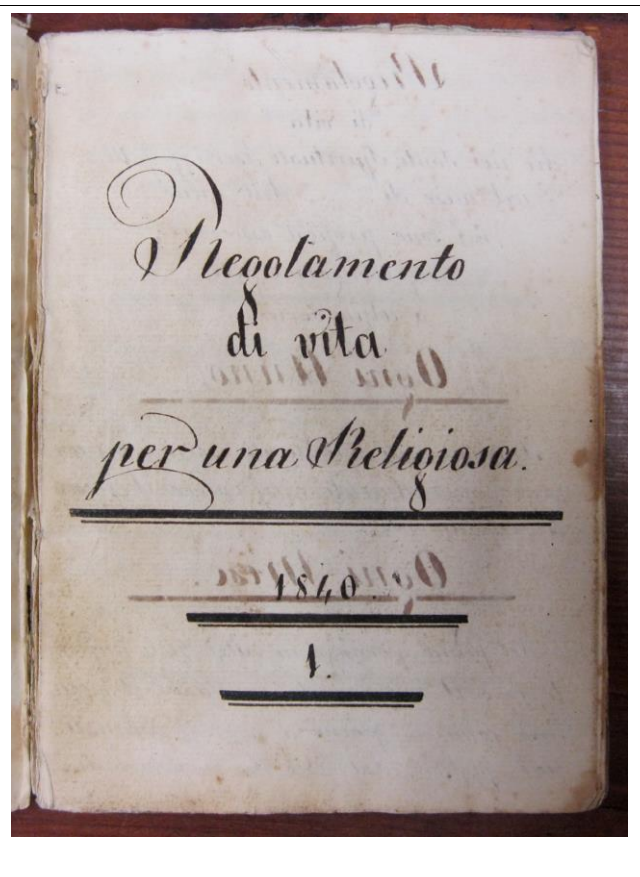 Regolamento
di vita
per una Religiosa.
1840.
1.